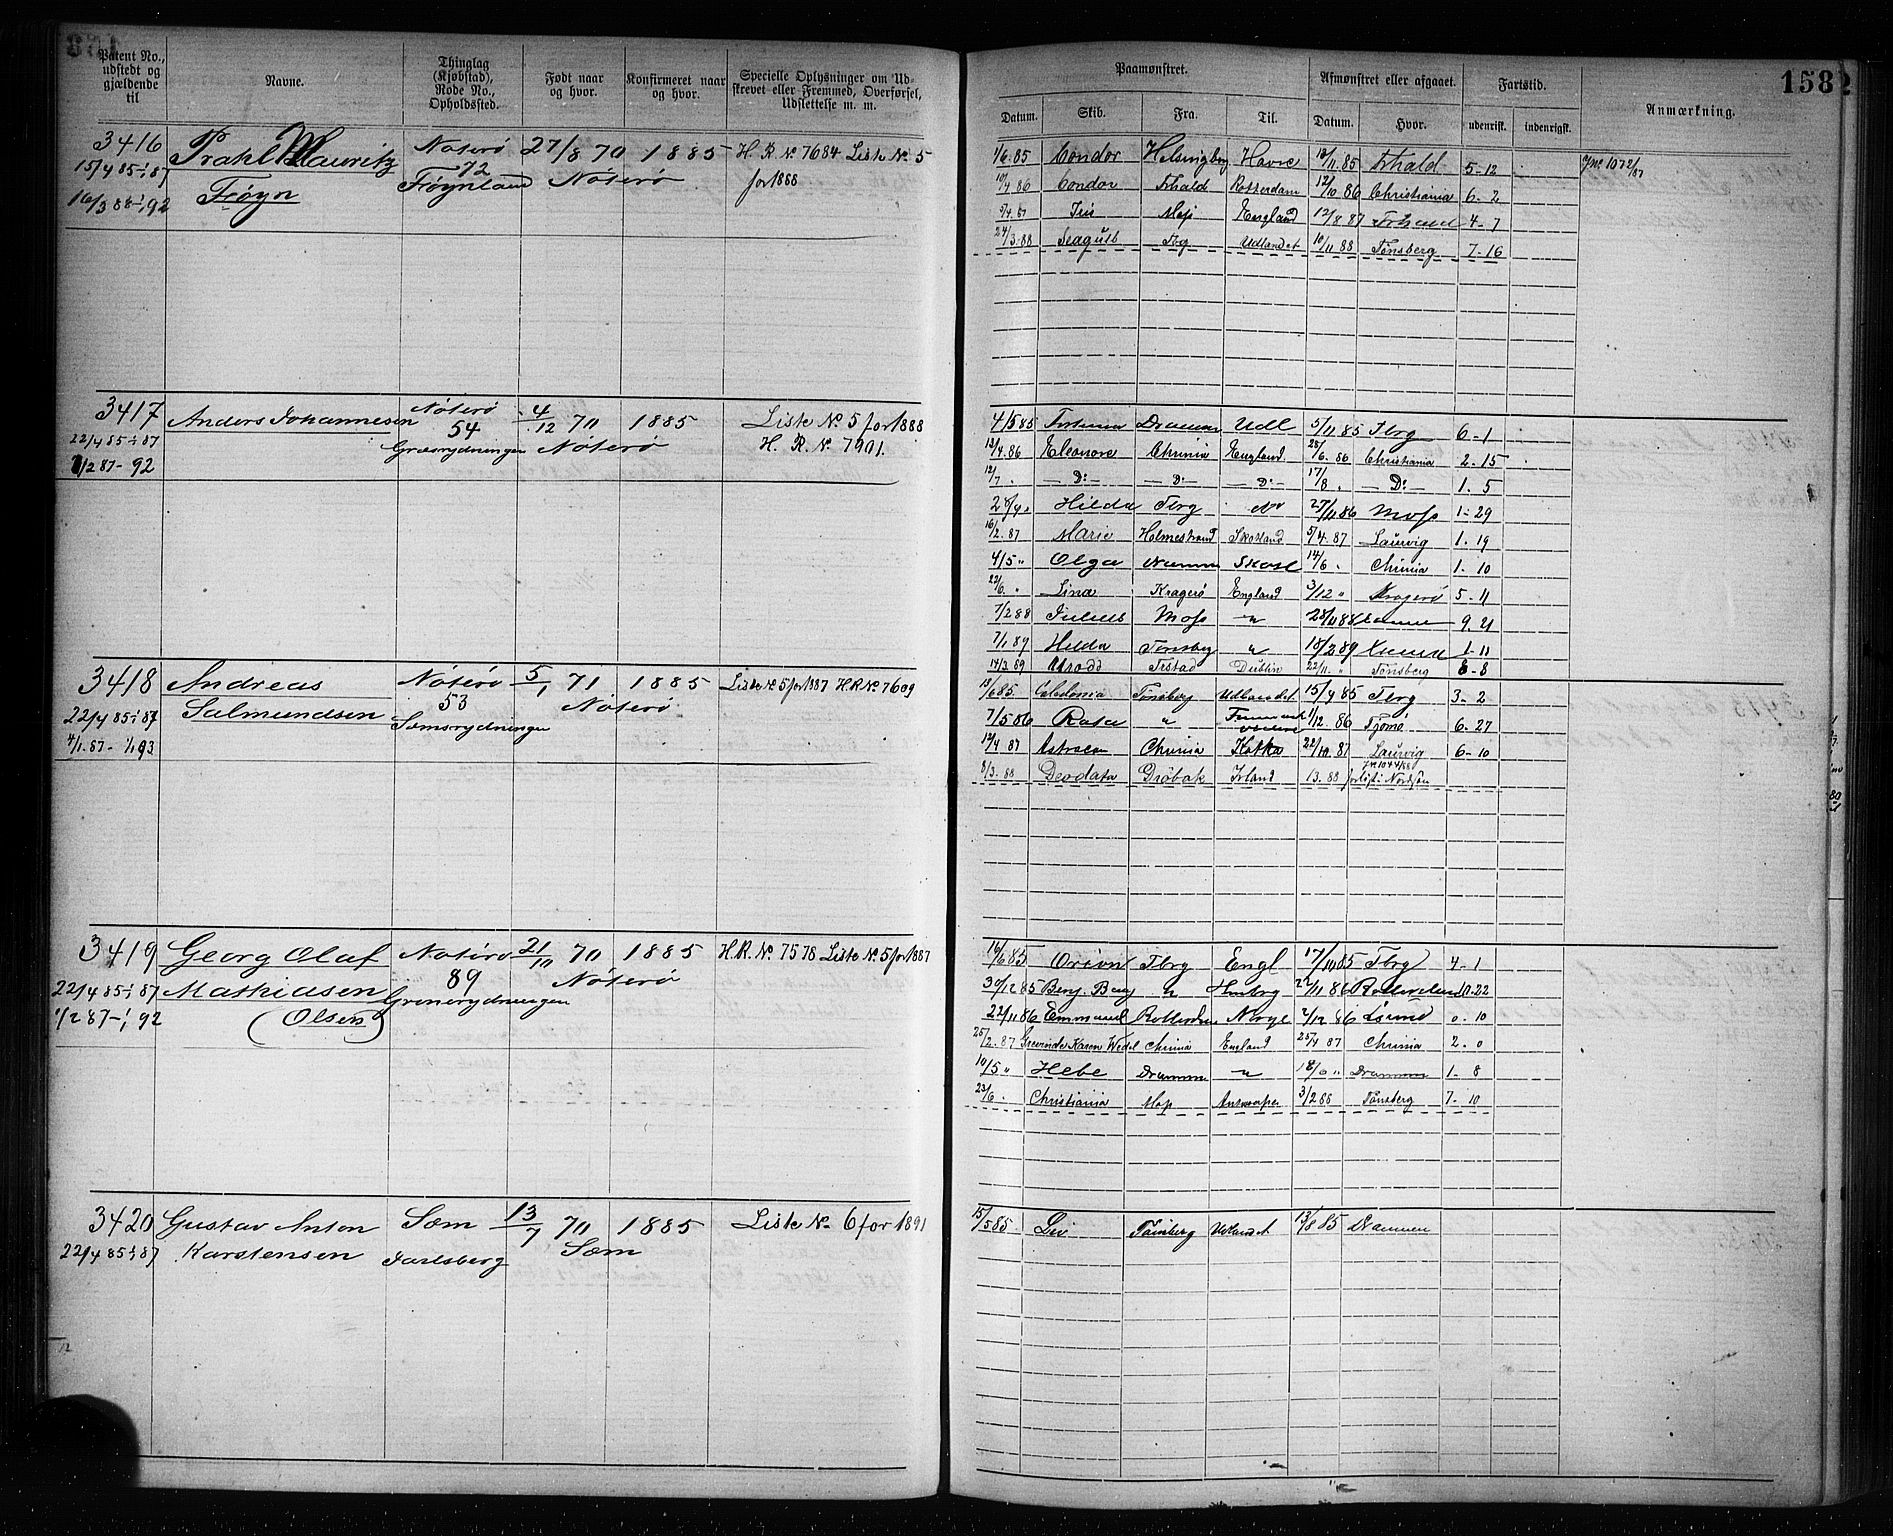 Patent No., udstedt og gjældende til | Navne. | Thinglag (Kjøbstad), Rode No., Opholdssted. | Født naar og hvor. | Konfirmeret naar og hvor. | Specielle Oplysninger om Udskrevet eller Fremmed, Overførsel, Udslettelse m. m.
3416 Prahl Mauritz Nøterø 27/8 70 1885 H. R. No 7684 Liste No 5
15/4 85-1/1 87 72 Nøterø for 1888
16/3 88-1/1 92 Frøyn Frøynland
3417 Anders Johannesen Nøterø 4/12 70 1885 Liste No 5 for 1888
22/4 85-1/1 87 54 Nøterø H. R. No 7901.
1/2 87-92 Græsrydningen
3418 Andreas Nøterø 5/1 71 1885 Liste No 5 for 1887 H.R. No 7609
22/4 85-1/1 87 Salmundsen 53 Nøterø
4/1.87-1/1 93 Sæmsrydningen
3419 Georg Olaf Nøterø 21/10 70 1885 H.R. No 7578 Liste No 5 for 1887
22/4 85-1/1 87 Mathiasen 89 Nøterø
1/2 87-1/1 92 (Olsen)
3420 Gustav Anton Sæm 13/7 70 1885 Liste No 6 for 1891
22/4 85-1/1 87 Karstensen Jarlsberg Sæm
1582
Paamønstret. | Afmønstret eller afgaaet. | Fartstid. | Anmærkning.
Datum. | Skib. | Fra. | Til. | Datum. | Hvor. | udenrisk. | indenrigsk.
1/6.85 Condor Helsingborg Havre 13/11.85 Frhald 5-12
10/4 86 Condor Frhald Rotterdam 12/10 86 Christiania 6-2
5/4.87 Iris Moss England 12/8 87 4-7
24/3.88 Seagull Tbg Udlandet 10/11 88 Tønsberg 7-16
4/5 85 Fortuna Drammen Udl 5/11 85 Tbrg 6-1
13/4.86 Eleonore Chrinia England 28/6.86 Christiania 2-15
12/7 „ — Do — — Do — — Do — 17/8 „ — Do — 1. 5
Hilda Tbrg 27/11 86 Moss 1-29
16/2.87 Marie Holmestrand Skotland 5/4.87 Laurvig 1. 19
4/5 „ Olga Skotl 14/6 „ Chrinia 1. 10
22/6. „ Lina Kragerø England 3/12 „ Kragerø 5-11
7/2 88 Julius Moss „ 9. 21
7/1 89 Hilda Tønsbg „ 18/2.89 1-11
14/3.89 Dublin 22/11. „ Tønsberg 8-8
Caledonia Tønsberg Udlandet 15/9 85 Tbrg 3-2
7/5 86 Rosa „ 1/12.86 Tjømø 6-27
12/4 87 Chrinia Kotka 22/10.87 Laurvig 6-10
8/3.88 Deodata Drøbak Irland 13.88 forlist i Nordsøn
16/6 85 Orion Tbrg Engl 17/10 85 Tbrg 4-1
Benj. Bang „ 10-22
22/11 86 Emmanuel Norge 2/12 86 0. 10
25/2.87 Grevinde Karen Wedel Chrinia England 25/4 87 Chrinia 2. 0
10/5 „ Hebe Drammen „ Drammen 1. 8
23/6 „ Christiania Moss Antwerpen 3/2 88 Tønsberg 7- 10
15/5 85 Tønsberg Udlandet 13/8 85 Drammen